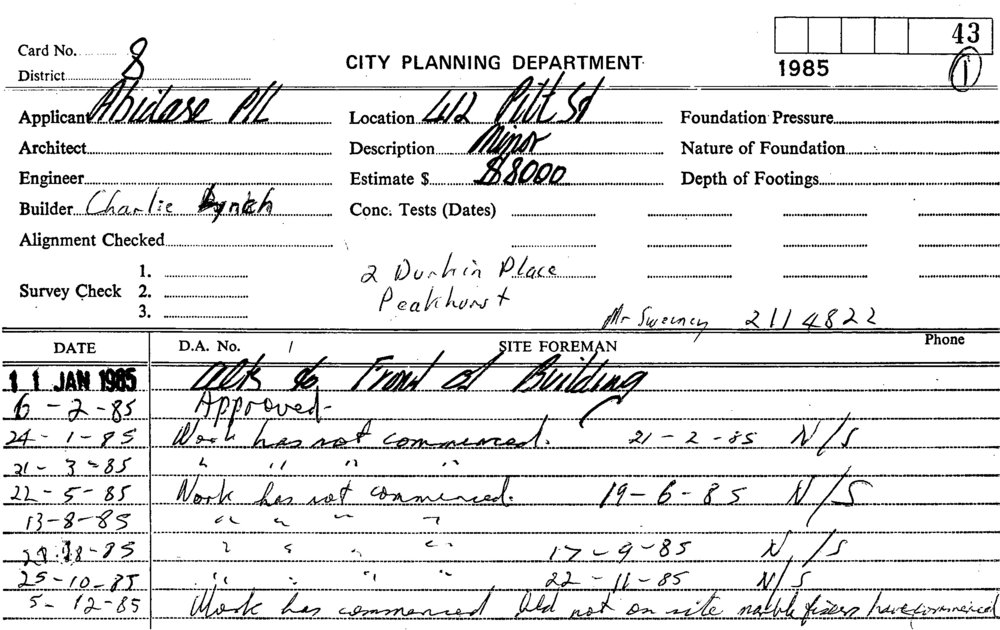 43
Card No. 8
CITY PLANNING DEPARTMENT
1985
1
District
Applicant Abidase P/L
Location 412 Pitt St
Foundation Pressure
Architect
Description Minor
Nature of Foundation
Engineer
Estimate $ $8000
Depth of Footings
Builder Charlie Lynch
Conc. Tests (Dates)
Alignment Checked
Survey Check 1. 2. 3.
2 Durkin Place
Peakhurst
Mr Sweeney 211 4822
DATE D.A. No. / SITE FOREMAN Phone
11 JAN 1985 Alts to Front of Building
6 - 2 - 85 Approved-
24 - 1 - 85 Work has not commenced. 21 - 2 - 85 N/S
21 - 3 - 85 " " " "
22 - 5 - 85 Work has not commenced. 19 - 6 - 85 N/S
13 - 8 - 85 " " " "
8 - 85 " " " " 17 - 9 - 85 N/S
25 - 10 - 85 " " " " 22 - 11 - 85 N/S
5 - 12 - 85 Work has commenced not on site marble fixers have commenced